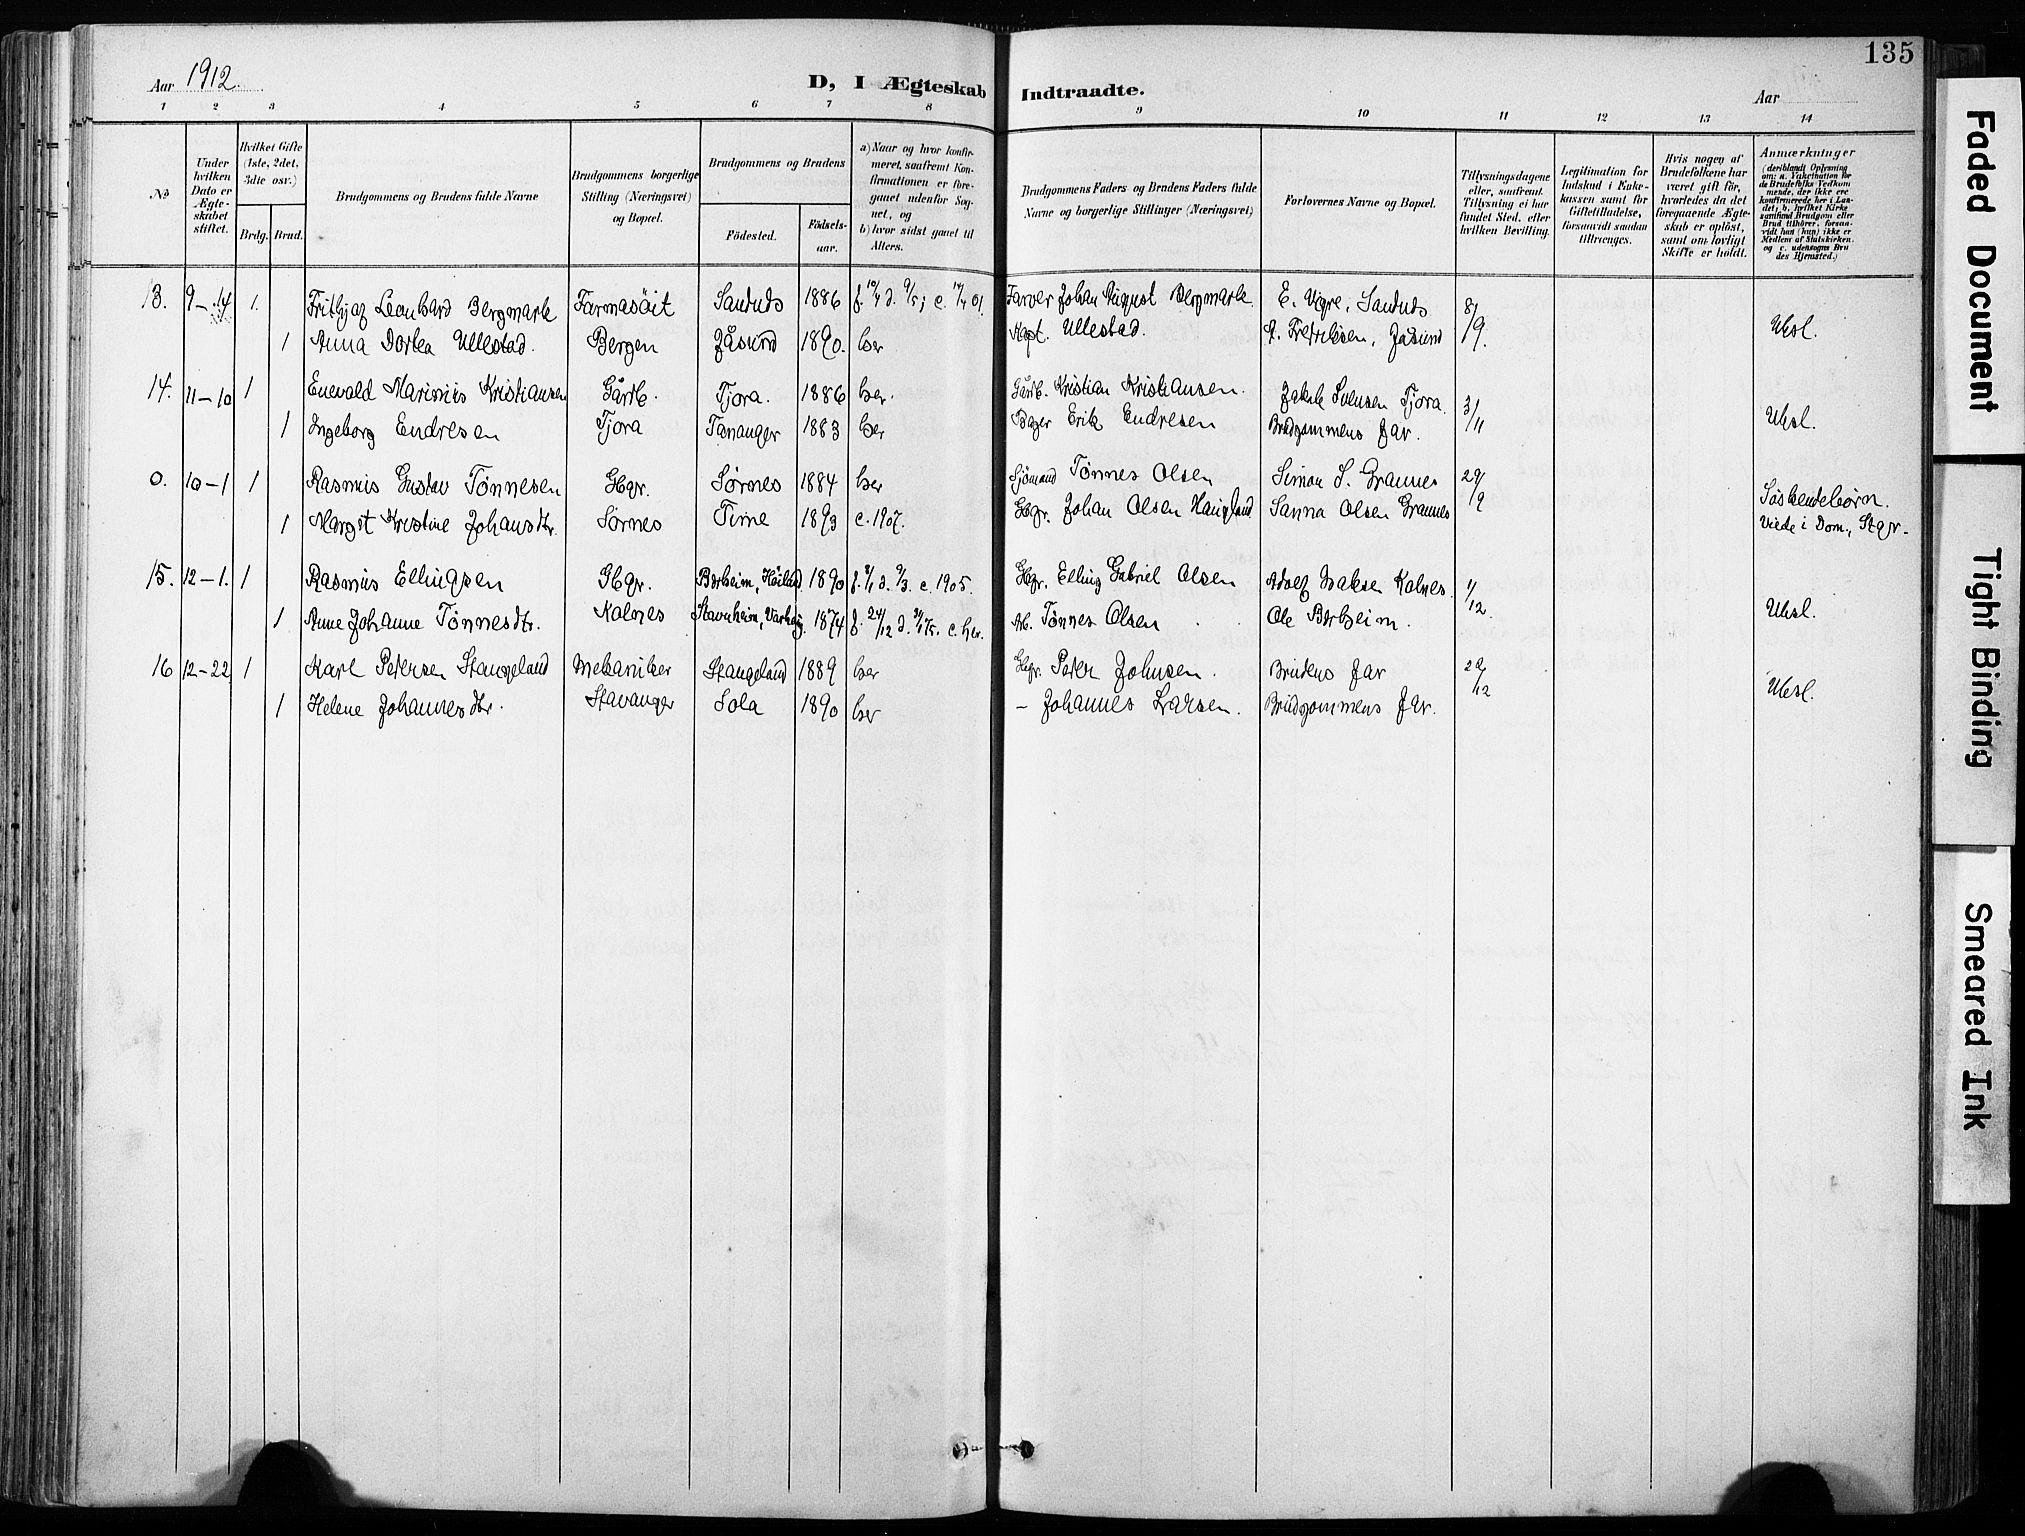 135
Aar 1912.
D, I Ægteskab Indtraadte.
Aar
1 2 3 4 5 6 7 8 9 10 11 12 13 14
No
Under hvilken Dato er Ægteskabet stiftet.
Hvilket Gifte (1ste, 2det, 3die osv.)
Brdg. Brud.
Brudgommens og Brudens fulde Navne
Brudgommens borgerlige Stilling (Næringsvei) og Bopæl.
Brudgommens og Brudens
Fødested.
Fødselsaar.
a) Naar og hvor konfirmeret, saafremt Konfirmationen er foregaaet udenfor Sognet, og
b) hvor sidst gaaet til Alters.
Brudgommens Faders og Brudens Faders fulde Navne og borgerlige Stillinger (Næringsvei)
Forlovernes Navne og Bopæl.
Tillysningsdagene eller, saafremt Tillysning ei har fundet Sted, efter hvilken Bevilling.
Legitimation for Indskud i Enkekassen samt for Giftetilladelse, forsaavidt saadan tiltrænges.
Hvis nogen af Brudefolkene har været gift før, hvorledes da det foregaaende Ægteskab er opløst, samt om lovligt Skifte er holdt.
Anmærkninger (deriblandt Oplysning om: a. Vakcination for de Brudefolks Vedkommende, der ikke ere konfirmerede her i Landet; b. hvilket Kirkesamfund Brudgom eller Brud tilhører, forsaavidt han (hun) ikke er Medlem af Statskirken, og c. udensogns Brudes Hjemsted.)
13. 9-14 1. Frithjof Leonhard Bergmark Farmasøit Sandnes 1886 Farver Johan August Bergmark E. Vigre, Sandnes 8/9.
1 Anna Dorthea Ullestad. Bergen Jåsund 1890. her Kapt. Ullestad. Fredriksen, Jåsund Uksl.
14. 11-10 1 Enevald Marinius Kristiansen Gårdb. Tjora. 1886 her. Gårdb. Kristian Kristiansen. Jakob Svensen Tjora. 3/11
1 Ingeborg Endresen Tjora Tananger 1883 her Erik Endresen Brudgommens far. Uksl.
0. 10-1 1 Rasmus Gustav Tønnesen Gbgr. Sørnes 1884 her Sjømand Tønnes Olsen Simon S. Grannes 29/9
1 Margit Kristine Johansdtr. Sørnes Time 1893 c. 1907. Gbgr. Johan Olsen Haugland Sanna Olsen Grannes Søskendebørn. Viede i Dom., Stgr.
15. 12-1. 1 Rasmus Ellingsen Gbgr. Berheim, Høiland 1890 c. 1905. Gbgr. Elling Gabriel Olsen Adolf Kolnes. 1/12
1 Anne Johanne Tønnesdtr. Kolnes Stavnheim, Varhaug. 1874 c. her. Arb. Tønnes Olsen Ole Berheim. Uksl.
16 12-22 1 Karl Petersen Stangeland Mekaniker Stangeland 1889 her Gbgr. Peter Johnsen. Brudens far 22/12
1 Helene Johannesdtr. Stavanger Sola 1890 her - Johannes Larsen. Brudgommens far. Uksl.
Faded Document
Tight Binding
Smeared Ink